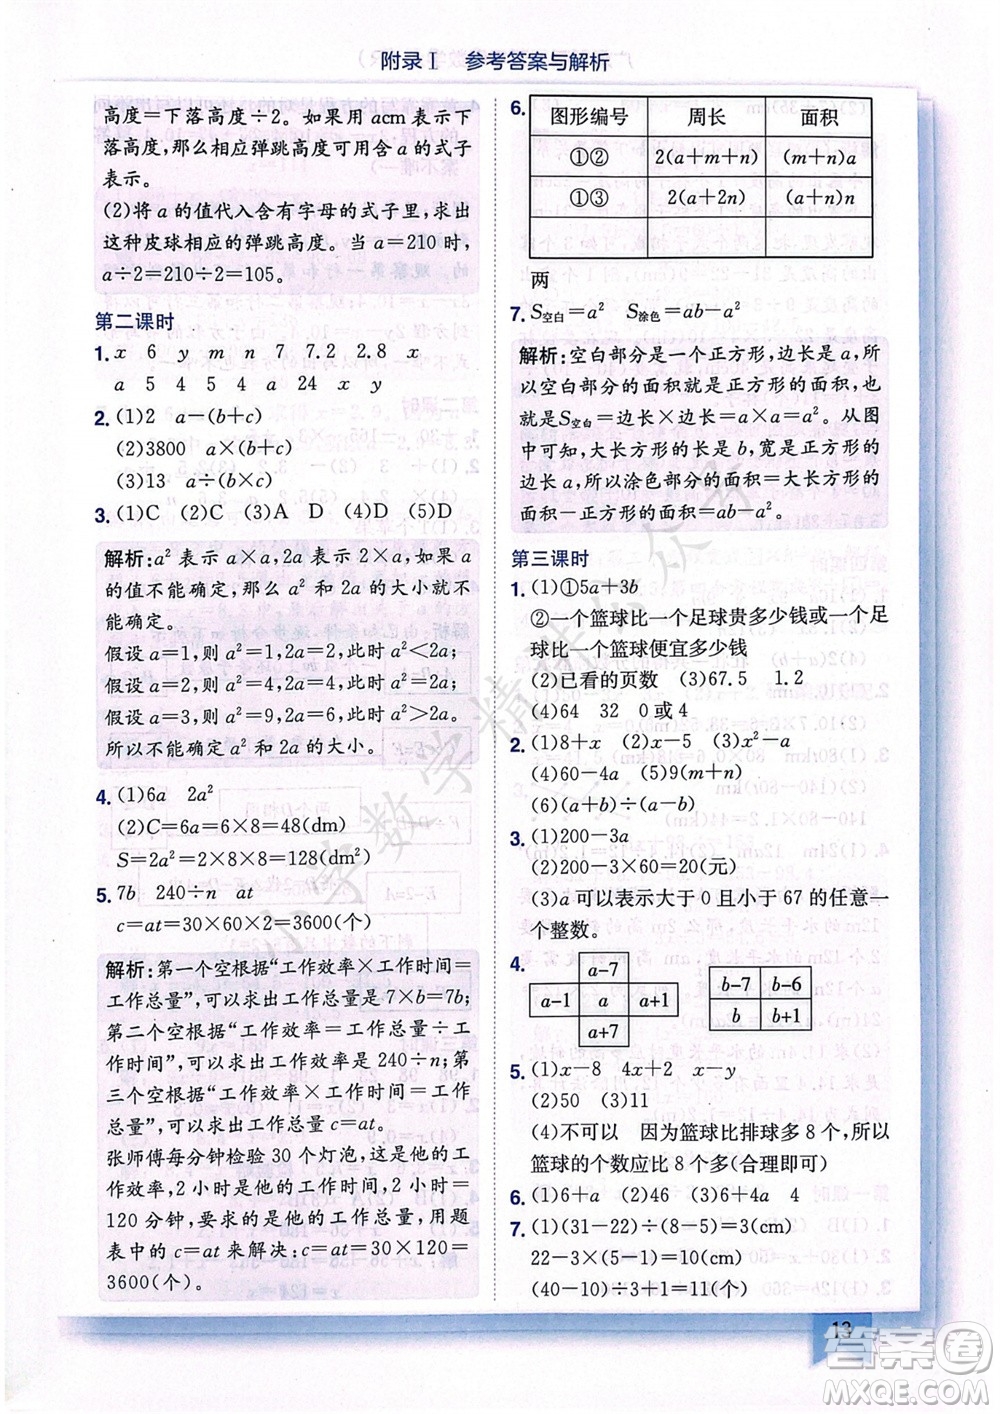 附录Ⅰ 参考答案与解析
高度=下落高度÷2。如果用 acm 表示下
落高度,那么相应弹跳高度可用含 a 的式子
表示。
(2)将 a 的值代入含有字母的式子里,求出
这种皮球相应的弹跳高度。当 a=210 时,
a÷2=210÷2=105。
第二课时
1. x 6 y m n 7 7.2 2.8 x
a 5 4 5 4 a 24 x y
2. (1)2 a-(b+c)
(2)3800 a(b+c)
(3)13 a÷(b×c)
3. (1)C (2)C (3)A D (4)D (5)D
解析:a² 表示 a×a,2a 表示 2×a,如果 a
的值不能确定,那么 a² 和 2a 的大小就不
能确定。
假设 a=1,则 a²=1,2a=2,此时 a²<2a;
假设 a=2,则 a²=4,2a=4,此时 a²=2a;
假设 a=3,则 a²=9,2a=6,此时 a²>2a。
所以不能确定 a² 和 2a 的大小。
4. (1)6a 2a²
(2)C=6a=6×8=48(dm)
S=2a²=2×8×8=128(dm²)
5. 7b 240÷n at
c=at=30×60×2=3600(个)
解析:第一个空根据“工作效率×工作时间=
工作总量”,可以求出工作总量是 7×b=7b;
第二个空根据“工作效率=工作总量÷工
作时间”,可以求出工作效率是 240÷n;第
三个空根据“工作效率×工作时间=工作
总量”,可以求出工作总量 c=at。
张师傅每分钟检验 30 个灯泡,这是他的工
作效率,2 小时是他的工作时间,2 小时=
120 分钟,要求的是他的工作总量,用题
表中的 c=at 来解决:c=at=30×120=
3600(个)。
6.
图形编号 周长 面积
①② 2(a+m+n) (m+n)a
①③ 2(a+2n) (a+n)n
两
7. S空白=a² S涂色=ab-a²
解析:空白部分是一个正方形,边长是 a,所
以空白部分的面积就是正方形的面积,也
就是S空白=边长×边长=a×a=a²。从图
中可知,大长方形的长是 b,宽是正方形的
边长 a,所以涂色部分的面积=大长方形
的面积-正方形的面积=ab-a²。
第三课时
1. (1)①5a+3b
②一个篮球比一个足球贵多少钱或一个足
球比一个篮球便宜多少钱
(2)已看的页数 (3)67.5 1.2
(4)64 32 0 或 4
2. (1)8+x (2)x-5 (3)x²-a
(4)60-4a (5)9(m+n)
(6)(a+b)÷c
3. (1)200-3a
(2)200-3×60=20(元)
(3)a 可以表示大于 0 且小于 67 的任意一
个整数。
4.
a-7
a-1 a a+1
a+7
b-7 b-6
b b+1
5. (1)x-8 4x+2 x-y
(2)50 (3)11
(4)不可以 因为篮球比排球多 8 个,所以
篮球的个数应比 8 个多(合理即可)
6. (1)6+a (2)46 (3)6+4a 4
7. (1)(31-22)÷(8-5)=3(cm)
22-3×(5-1)=10(cm)
(2)(40-10)÷3+1=11(个)
13
小学数学精选公众号
答案圈
MXQE.COM